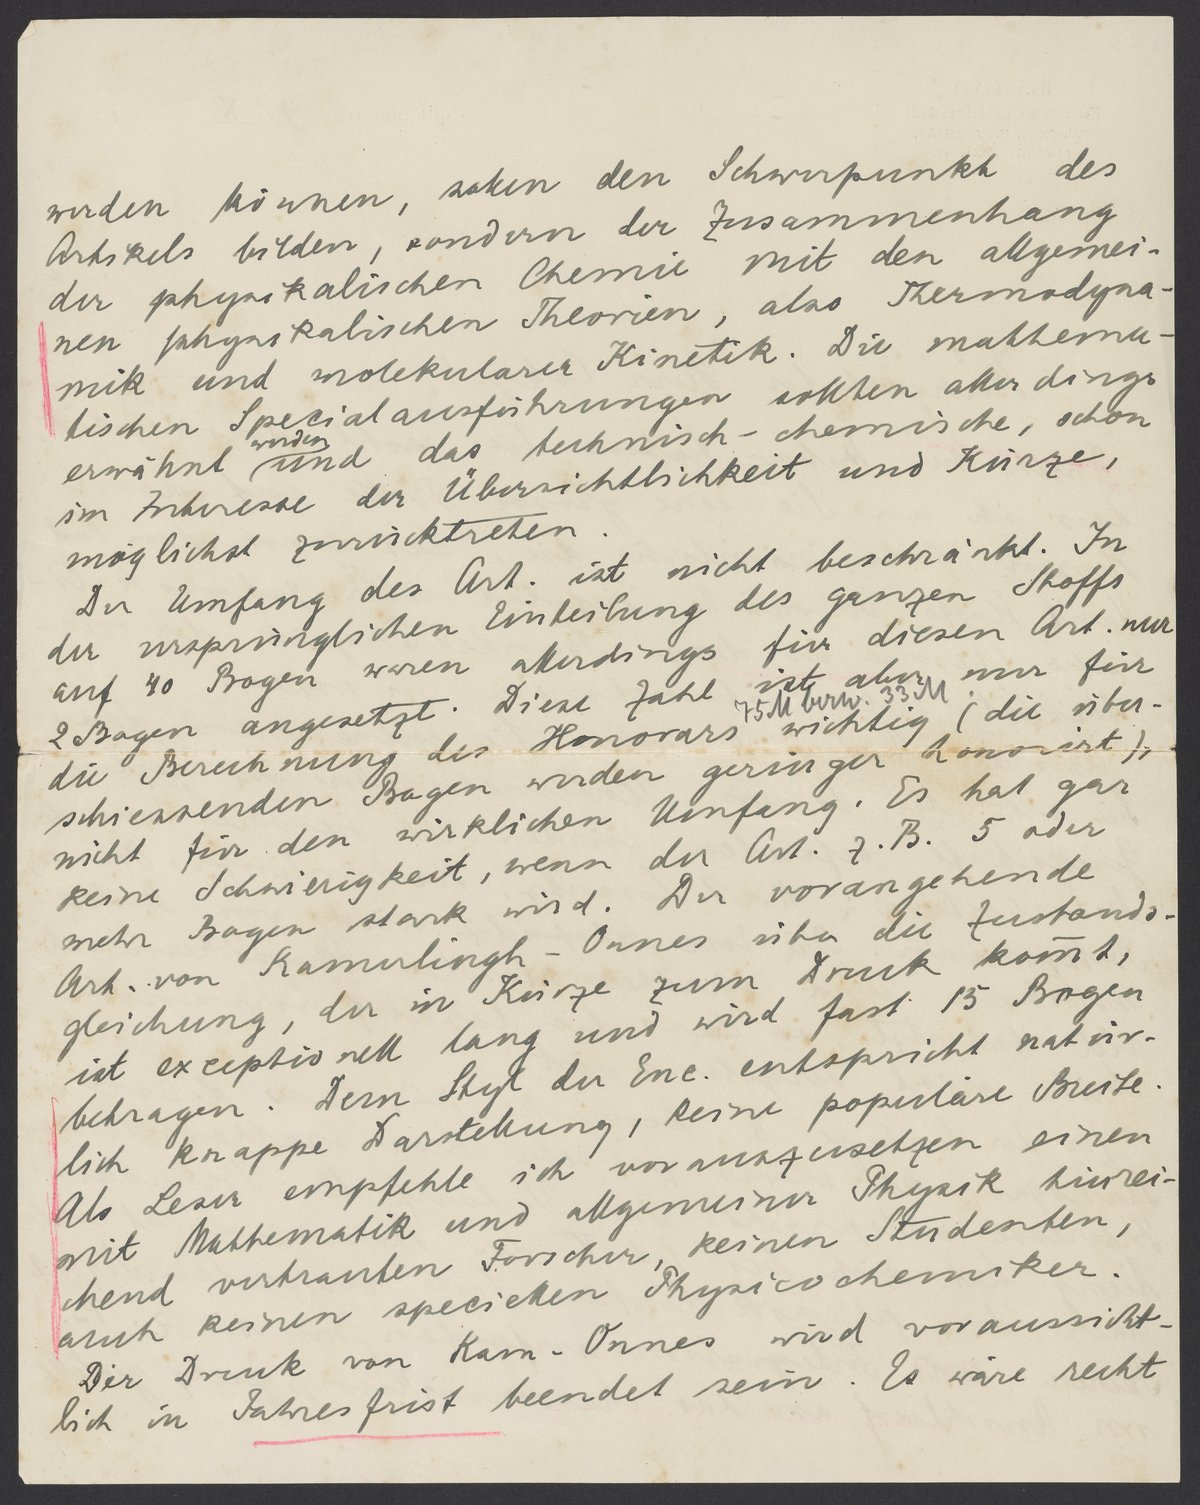 werden können, sollen den Schwerpunkt des
Artikels bilden, sondern der Zusammenhang
der physikalischen Chemie mit den allgemei-
nen physikalischen Theorien, also Thermodyna-
mik und molekularer Kinetik. Die mathema-
tischen Specialausführungen sollten allerdings
erwähnt werden und das technisch-chemische, schon
im Interesse der Übersichtlichkeit und Kürze,
möglichst zurücktreten.
Der Umfang des Art. ist nicht beschränkt. In
der ursprünglichen Einteilung des ganzen Stoffs
auf 40 Bogen waren allerdings für diesen Art. nur
2 Bogen angesetzt. Diese Zahl ist aber nur für
75 M bezw. 33 M
die Berechnung des Honorars wichtig (die über-
schiessenden Bogen werden geringer honorirt),
nicht für den wirklichen Umfang. Es hat gar
keine Schwierigkeit, wenn der Art. z. B. 5 oder
mehr Bogen stark wird. Der vorangehende
Art. von Kamerlingh-Onnes über die Zustands-
gleichung, der in Kürze zum Druck kom̅t,
ist exceptionell lang und wird fast 15 Bogen
betragen. Dem Styl der Enc. entspricht natür-
lich knappe Darstellung, keine populäre Breite.
Als Leser empfehle ich vorauszusetzen einen
mit Mathematik und allgemeiner Physik hinrei-
chend vertrauten Forscher, keinen Studenten,
auch keinen speciellen Physicochemiker.
Der Druck von Kam-Onnes wird voraussicht-
lich in Jahresfrist beendet sein. Es wäre recht